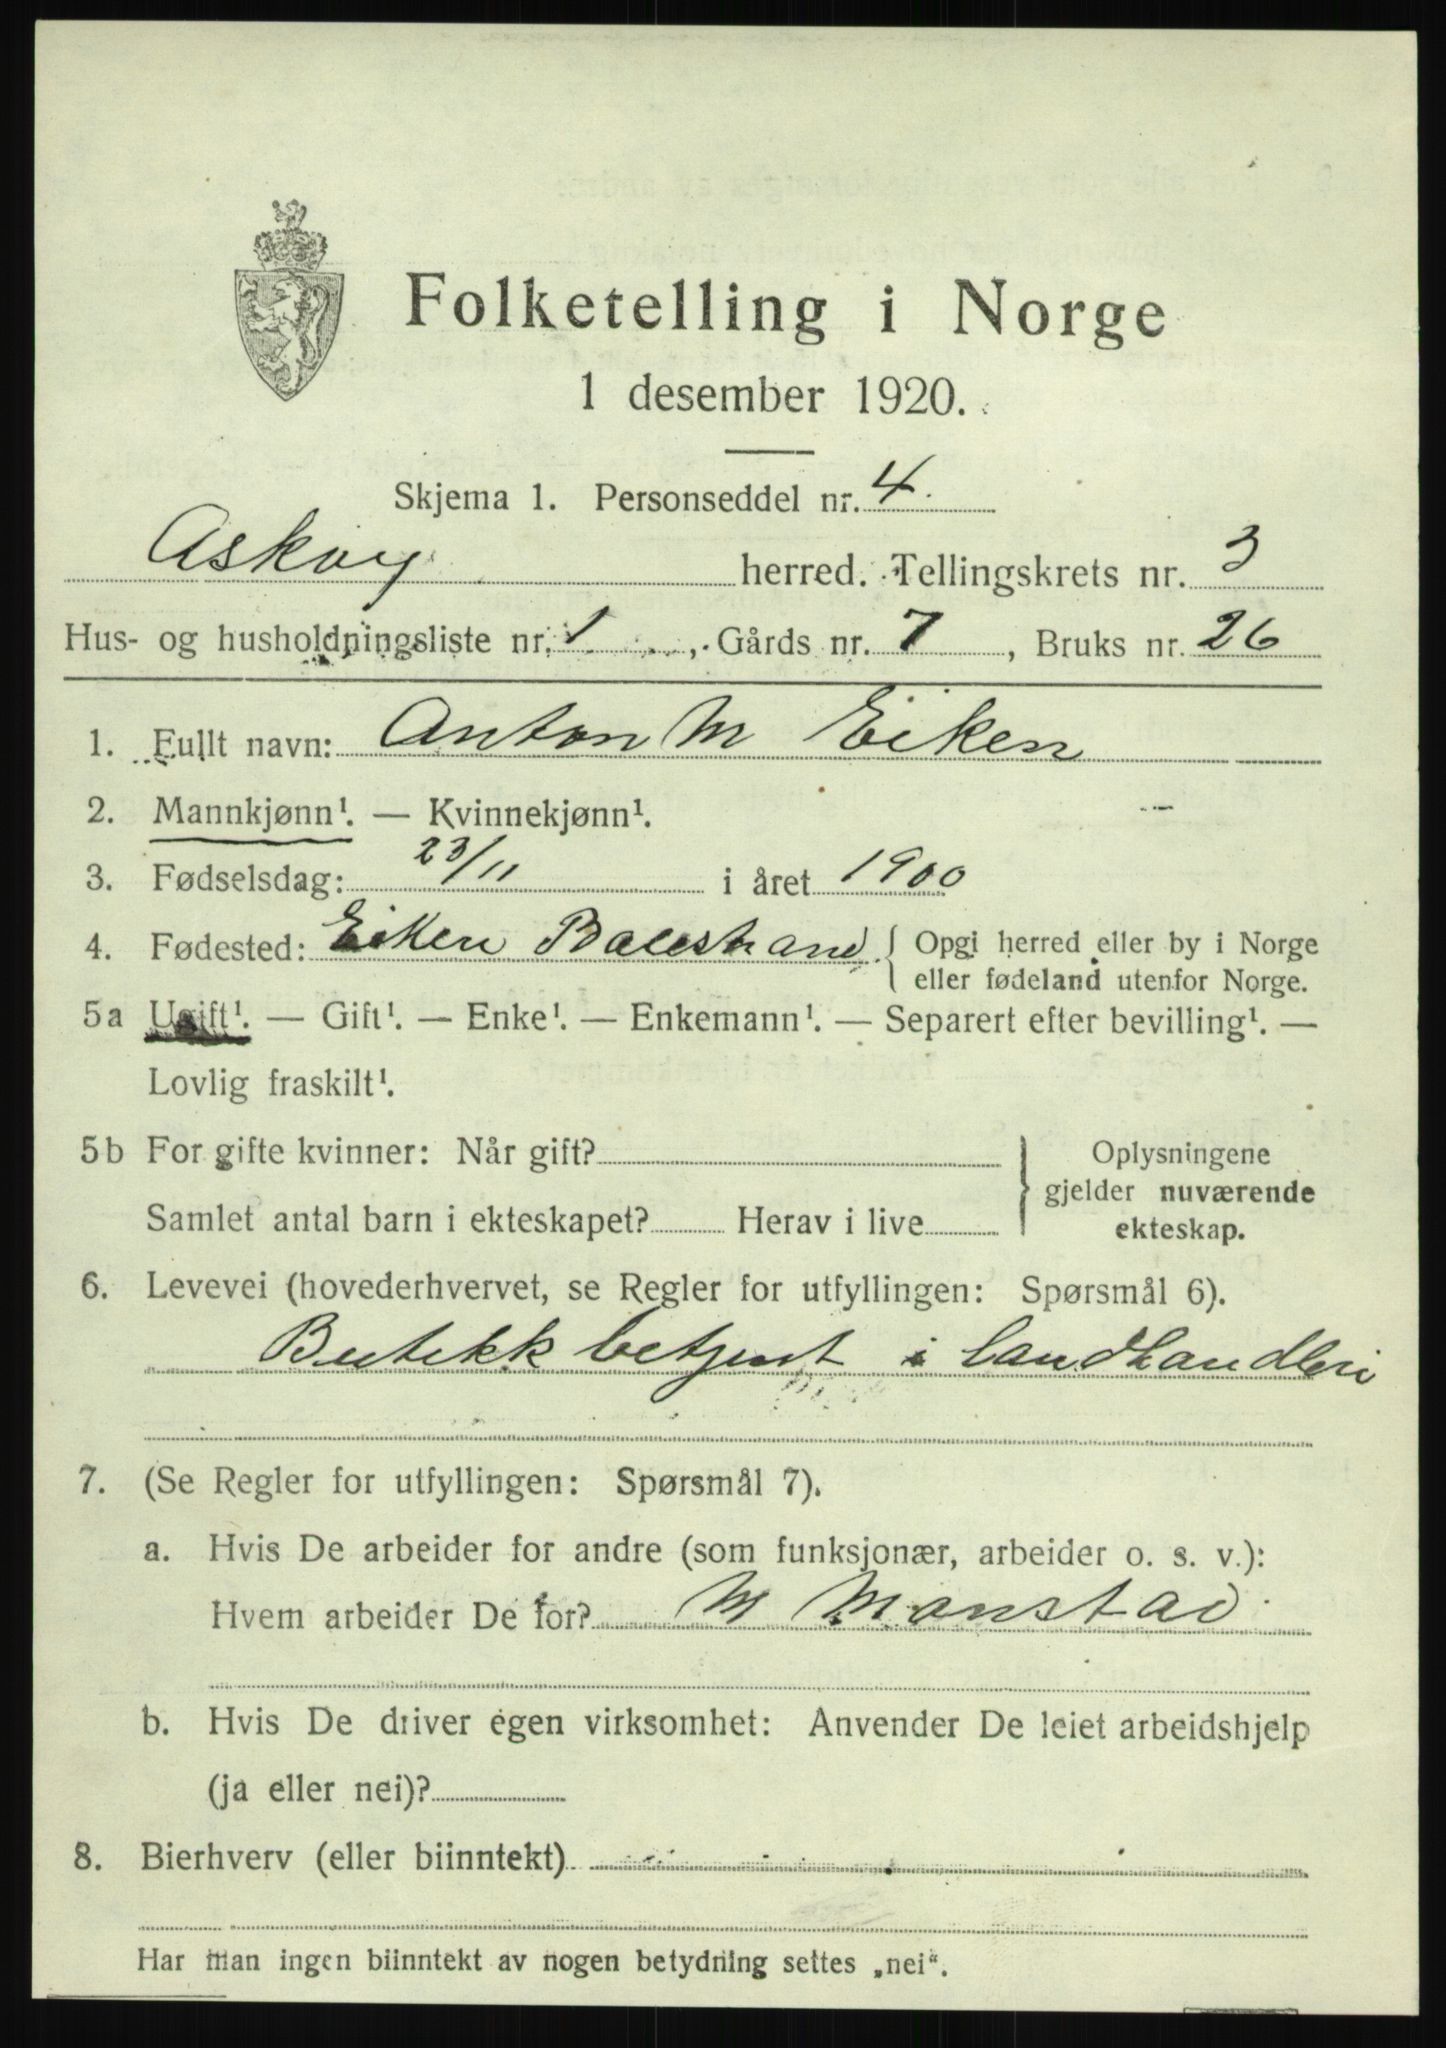 Folketelling i Norge
1 desember 1920.
Skjema 1. Personseddel nr. 4.
Askøy herred. Tellingskrets nr. 3
Hus- og husholdningsliste nr. 1, Gårds nr. 7, Bruks nr. 26
1. Fullt navn: Anton M Eiken
2. Mannkjønn¹. — Kvinnekjønn¹.
3. Fødselsdag: 23/11 i året 1900
4. Fødested: Eiken Balestrand { Opgi herred eller by i Norge
eller fødeland utenfor Norge.
5a Ugift¹. — Gift¹. — Enke¹. — Enkemann¹. — Separert efter bevilling¹. —
Lovlig fraskilt¹.
5b For gifte kvinner: Når gift?
Samlet antal barn i ekteskapet? Herav i live
} Oplysningene
gjelder nuværende
ekteskap.
6. Levevei (hovederhvervet, se Regler for utfyllingen: Spørsmål 6).
Butikk betjent i landhandleri
7. (Se Regler for utfyllingen: Spørsmål 7).
a. Hvis De arbeider for andre (som funksjonær, arbeider o. s. v.):
Hvem arbeider De for? M Monstad
b. Hvis De driver egen virksomhet: Anvender De leiet arbeidshjelp
(ja eller nei)?
8. Bierhverv (eller biinntekt)
Har man ingen biinntekt av nogen betydning settes „nei“.